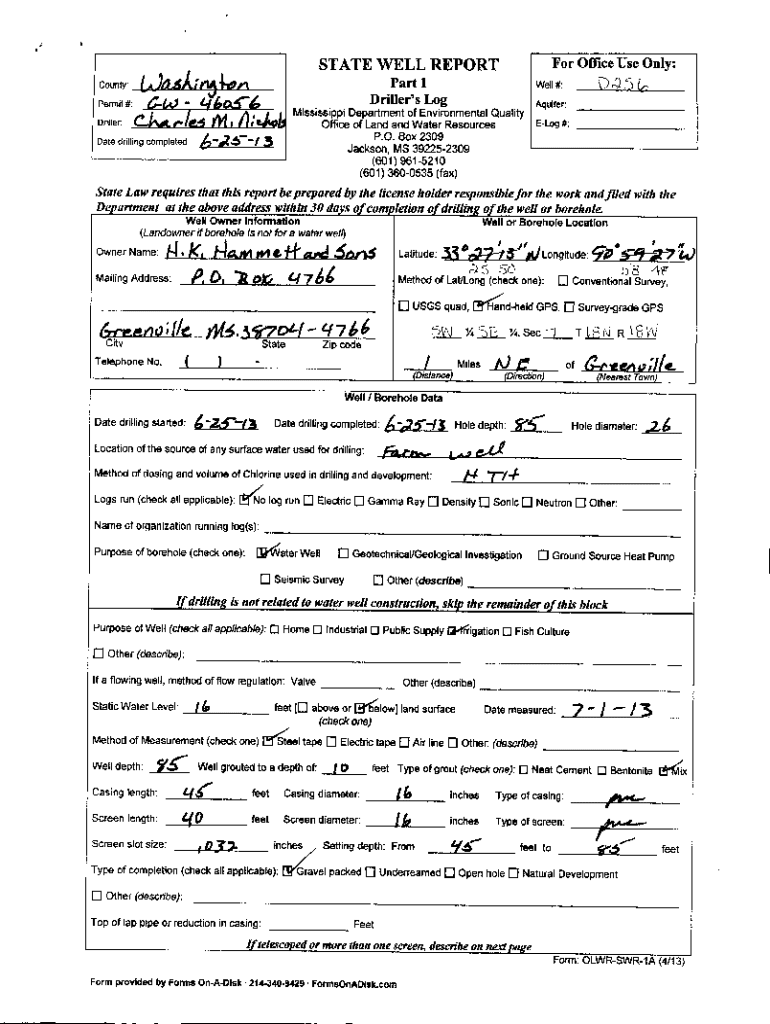 STATE WELL REPORT
Part 1
Driller's Log
Mississippi Department of Environmental Quality
Office of Land and Water Resources
P.O. Box 2309
Jackson, MS 39225-2309
(601) 961-5210
(601) 360-0535 (fax)
County: Washington
Permit #: GW-46056
Driller: Charles M. Nichols
Date drilling completed: 6-25-13
For Office Use Only:
Well #: D256
Aquifer:
E-Log #:
State Law requires that this report be prepared by the license holder responsible for the work and filed with the
Department at the above address within 30 days of completion of drilling of the well or borehole.
Well Owner Information
(Landowner if borehole is not for a water well)
Owner Name: H.K. Hammett and Sons
Mailing Address: P.O. Box 4766
Greenville Ms. 38704-4766
City State Zip code
Telephone No. ( ) -
Well or Borehole Location
Latitude: 33° 27' 15" N Longitude: 90° 59' 27" W
25 50 58 48
Method of Lat/Long (check one): ☐ Conventional Survey,
☐ USGS quad, ☑ Hand-held GPS, ☐ Survey-grade GPS
SW ¼ SE ¼, Sec 7 T 18N R 18W
1 Miles NE of Greenville
(Distance) (Direction) (Nearest Town)
Well / Borehole Data
Date drilling started: 6-25-13 Date drilling completed: 6-25-13 Hole depth: 85 Hole diameter: 26
Location of the source of any surface water used for drilling: Farm well
Method of dosing and volume of Chlorine used in drilling and development: HTH
Logs run (check all applicable): ☑ No log run ☐ Electric ☐ Gamma Ray ☐ Density ☐ Sonic ☐ Neutron ☐ Other:
Name of organization running log(s):
Purpose of borehole (check one): ☑ Water Well ☐ Geotechnical/Geological Investigation ☐ Ground Source Heat Pump
☐ Seismic Survey ☐ Other (describe)
If drilling is not related to water well construction, skip the remainder of this block
Purpose of Well (check all applicable): ☐ Home ☐ Industrial ☐ Public Supply ☑ Irrigation ☐ Fish Culture
☐ Other (describe):
If a flowing well, method of flow regulation: Valve Other (describe)
Static Water Level: 16 feet [☐ above or ☑ below] land surface Date measured: 7-1-13
(check one)
Method of Measurement (check one) ☑ Steel tape ☐ Electric tape ☐ Air line ☐ Other: (describe)
Well depth: 85 Well grouted to a depth of: 10 feet Type of grout (check one): ☐ Neat Cement ☐ Bentonite ☑ Mix
Casing length: 45 feet Casing diameter: 16 inches Type of casing: pvc
Screen length: 40 feet Screen diameter: 16 inches Type of screen: pvc
Screen slot size: .032 inches Setting depth: From 45 feet to 85 feet
Type of completion (check all applicable): ☑ Gravel packed ☐ Underreamed ☐ Open hole ☐ Natural Development
☐ Other (describe):
Top of lap pipe or reduction in casing: Feet
If telescoped or more than one screen, describe on next page
Form: OLWR-SWR-1A (4/13)
Form provided by Forms On-A-Disk · 214-340-9429 · FormsOnADisk.com